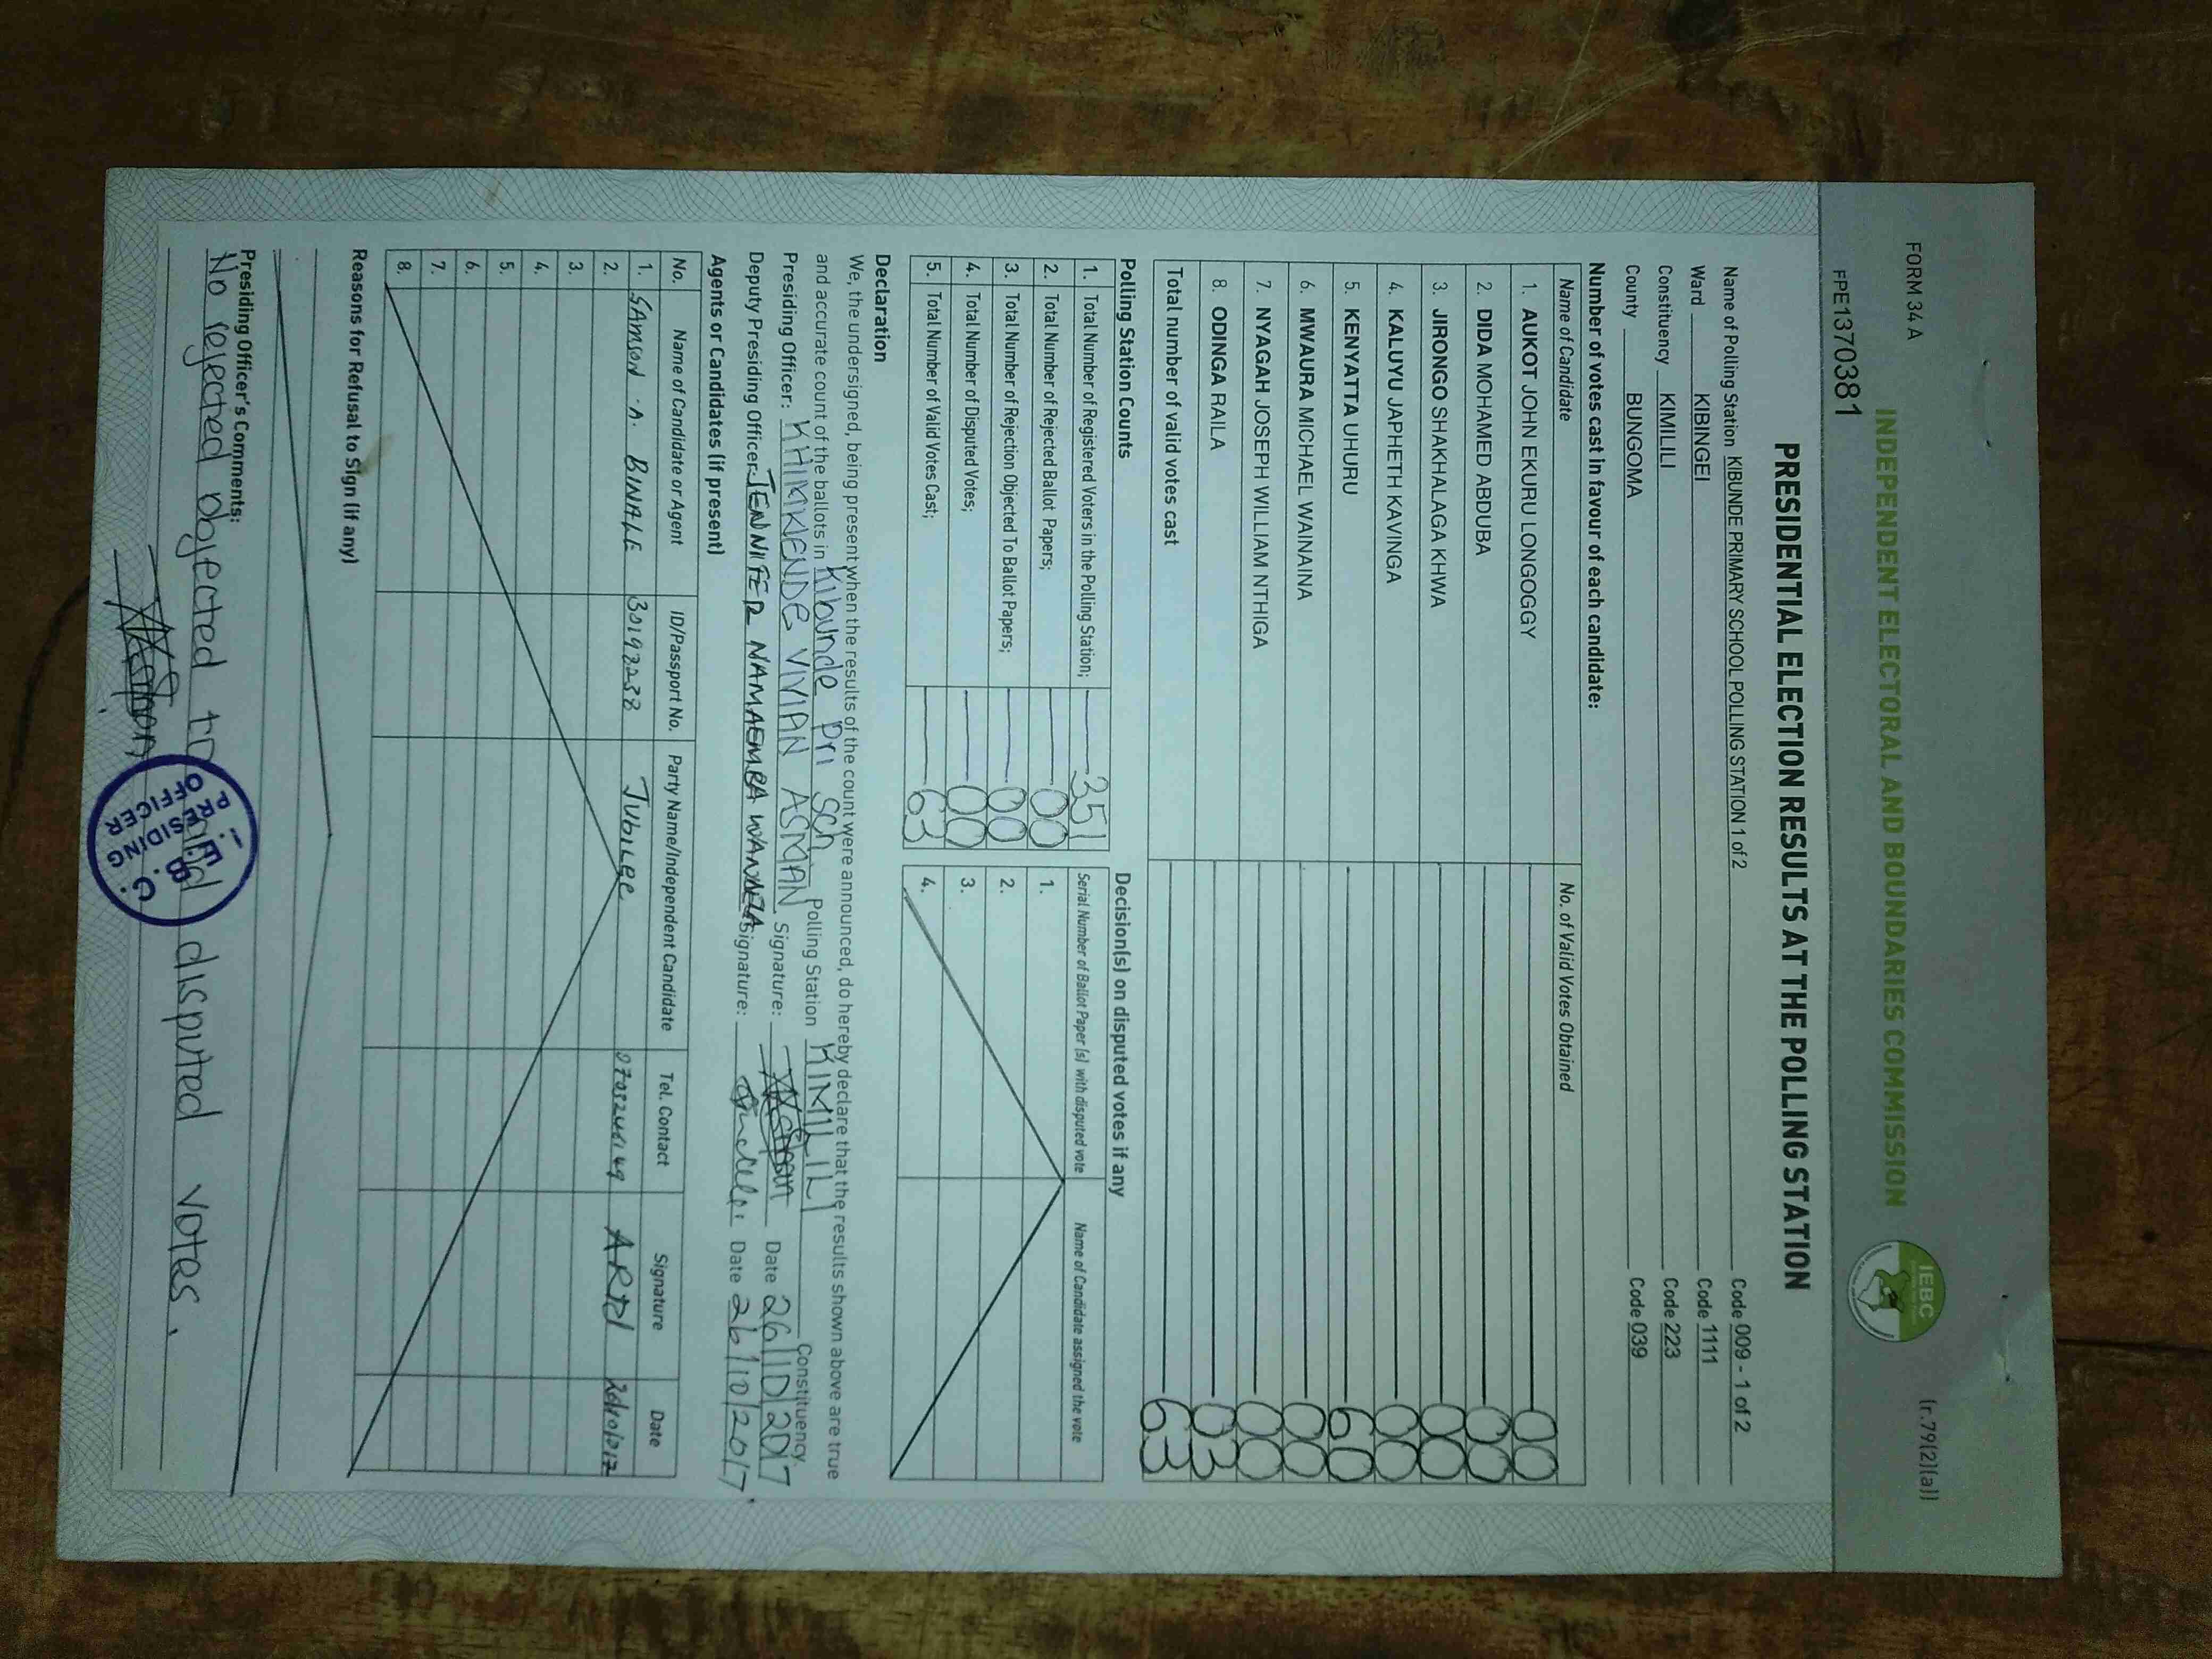 FORM 34 A
(r.79(2)(a))
INDEPENDENT ELECTORAL AND BOUNDARIES COMMISSION
IEBC
FPE1370381
PRESIDENTIAL ELECTION RESULTS AT THE POLLING STATION
Name of Polling Station KIBUNDE PRIMARY SCHOOL POLLING STATION 1 of 2 Code 009 - 1 of 2
Ward KIBINGEI Code 1111
Constituency KIMILILI Code 223
County BUNGOMA Code 039
Number of votes cast in favour of each candidate:
Name of Candidate No. of Valid Votes Obtained
1. AUKOT JOHN EKURU LONGOGGY 00
2. DIDA MOHAMED ABDUBA 00
3. JIRONGO SHAKHALAGA KHWA 00
4. KALUYU JAPHETH KAVINGA 00
5. KENYATTA UHURU 60
6. MWAURA MICHAEL WAINAINA 00
7. NYAGAH JOSEPH WILLIAM NTHIGA 00
8. ODINGA RAILA 03
Total number of valid votes cast 63
Polling Station Counts
1. Total Number of Registered Voters in the Polling Station; 351
2. Total Number of Rejected Ballot Papers; 00
3. Total Number of Rejection Objected To Ballot Papers; 00
4. Total Number of Disputed Votes; 00
5. Total Number of Valid Votes Cast; 63
Decision(s) on disputed votes if any
Serial Number of Ballot Paper (s) with disputed vote Name of Candidate assigned the vote
1.
2.
3.
4.
Declaration
We, the undersigned, being present when the results of the count were announced, do hereby declare that the results shown above are true
and accurate count of the ballots in Kibunde pri sch Polling Station KIMILILI Constituency.
Presiding Officer: KHIMKENDE VIVIAN ASMAN Signature: Date 26/10/2017
Deputy Presiding Officer: JENNIFER NAMAEMBA WANJALA Signature: Date 26/10/2017
Agents or Candidates (if present)
No. Name of Candidate or Agent ID/Passport No. Party Name/Independent Candidate Tel. Contact Signature Date
1. SAMSON A. BINALE 30192238 Jubilee
2.
3.
4.
5.
6.
7.
8.
Reasons for Refusal to Sign (if any)
Presiding Officer's Comments:
No rejected objected to and disputed votes.
I.E.B.C.
PRESIDING
OFFICER